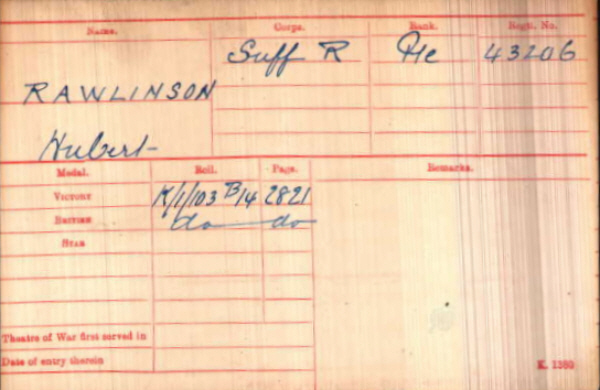 Name. Corps. Rank. Regtl. No.
Suff R Pte 43206
RAWLINSON
Hubert
Medal. Roll. Page. Remarks.
VICTORY K/1/103 B14 2821
BRITISH do do
STAR
Theatre of War first served in
Date of entry therein
K. 1380